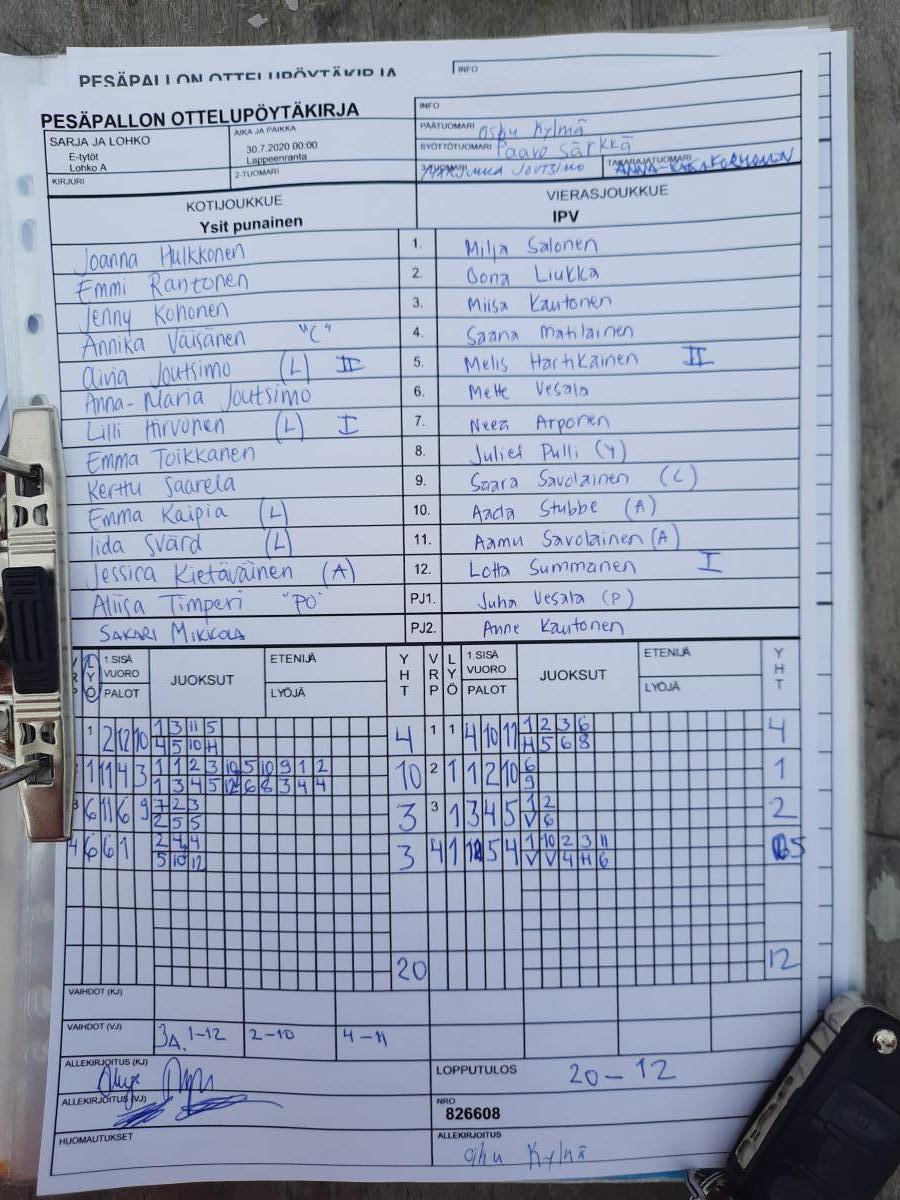 PESÄPALLON OTTELUPÖYTÄKIRJA
INFO
PESÄPALLON OTTELUPÖYTÄKIRJA
INFO
SARJA JA LOHKO
E-tytöt
Lohko A
AIKA JA PAIKKA
30.7.2020 00:00
Lappeenranta
PÄÄTUOMARI Osku Kylmä
SYÖTTÖTUOMARI Paavo Särkkä
KIRJURI
2-TUOMARI
3-TUOMARI Joutsimo
TAKARAJATUOMARI ANNA-KAISA KORHONEN
KOTIJOUKKUE
Ysit punainen
VIERASJOUKKUE
IPV
Joanna Hulkkonen 1. Milja Salonen
Emmi Rantonen 2. Oona Liukka
Jenny Kohonen 3. Miisa Kautonen
Annika Väisänen "C" 4. Saana Matilainen
Olivia Joutsimo (L) II 5. Melis Hartikainen II
Anna-Maria Joutsimo 6. Mette Vesala
Lilli Hirvonen (L) I 7. Neea Arponen
Emma Toikkanen 8. Juliet Pulli (Y)
Kerttu Saarela 9. Saara Savolainen (C)
Emma Kaipia (L) 10. Aada Stubbe (A)
Iida Svärd (L) 11. Aamu Savolainen (A)
Jessica Kietäväinen (A) 12. Lotta Summanen I
Aliisa Timperi "PO" PJ1. Juha Vesala (P)
SAKARI MIKKOLA PJ2. Anne Kautonen
VRP LYÖ 1.SISÄ VUORO PALOT JUOKSUT ETENIJÄ LYÖJÄ YHT VRP LYÖ 1.SISÄ VUORO PALOT JUOKSUT ETENIJÄ LYÖJÄ YHT
1 2 12 10 1 3 11 5 4 1 1 4 10 11 1 2 3 6 4
4 5 10 H H 5 6 8
1 11 4 3 1 1 2 3 10 5 10 9 1 2 10 2 1 1 2 10 6 1
1 3 4 5 12 6 8 3 4 4 9
3 6 11 6 9 7 2 3 3 3 1 3 4 5 1 2 2
2 5 5 V 6
4 6 6 1 2 4 4 3 4 1 5 4 1 10 2 3 11 5
5 10 12 V V 4 H 6
20 12
VAIHDOT (KJ)
VAIHDOT (VJ) 3A. 1-12 2-10 4-11
ALLEKIRJOITUS (KJ)
LOPPUTULOS 20-12
ALLEKIRJOITUS (VJ)
NRO
826608
HUOMAUTUKSET
ALLEKIRJOITUS
Kylmä